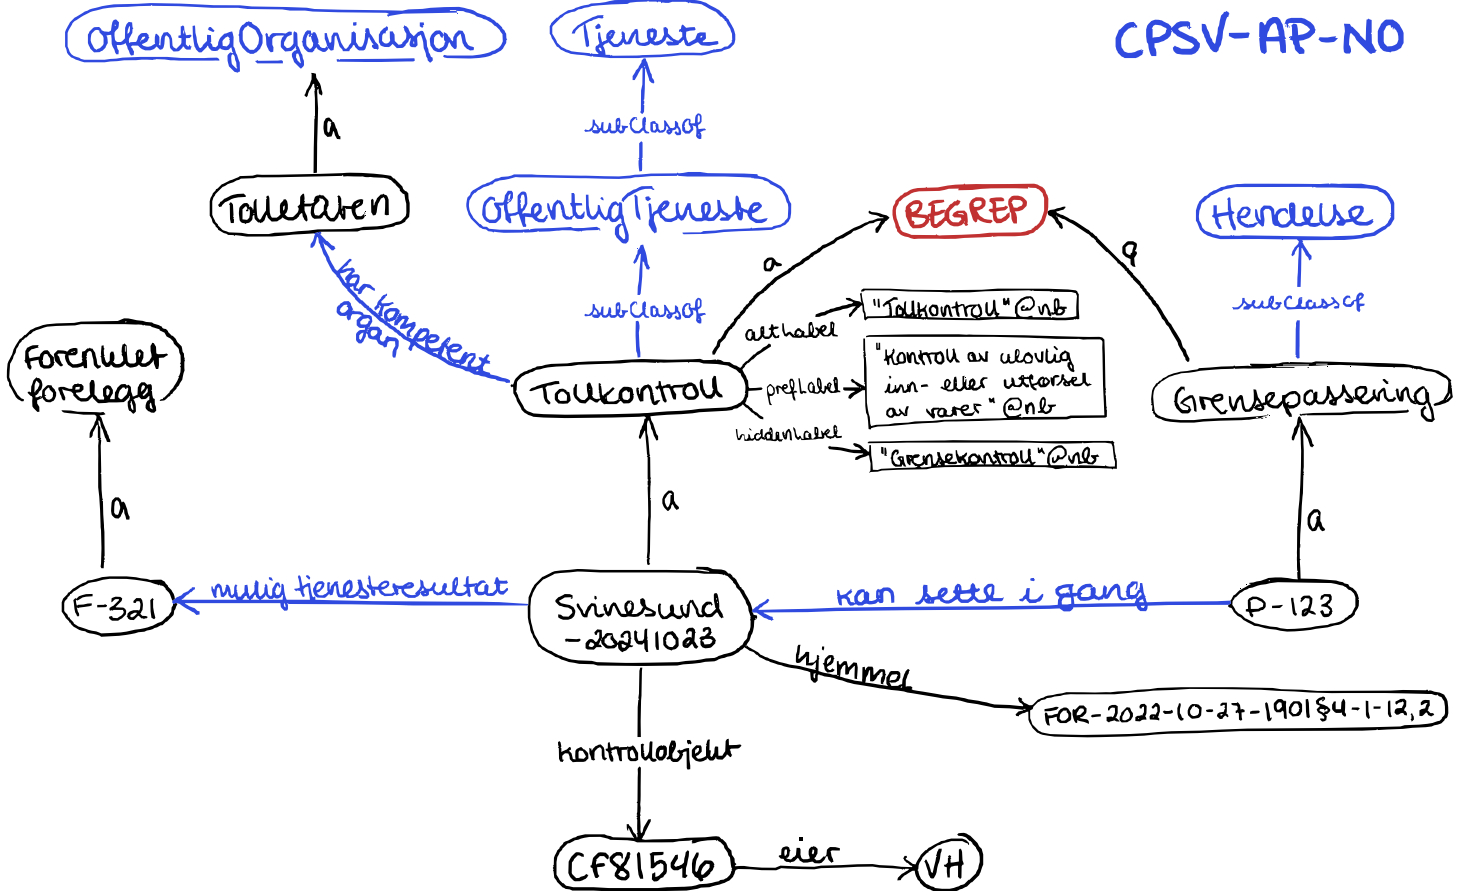 OffentligOrganisasjon
Tjeneste
CPSV-AP-NO
a
subClassOf
Tolletaten
OffentligTjeneste
BEGREP
Hendelse
har kompetent
organ
a
a
subClassOf
subClassOf
"Tollkontroll"@nb
altLabel
Forenklet
forelegg
Tollkontroll
prefLabel
"Kontroll av ulovlig
inn- eller utførsel
av varer"@nb
Grensepassering
hiddenLabel
"Grensekontroll"@nb
a
a
a
F-321
mulig tjenesteresultat
Svinesund
-20241023
kan sette i gang
P-123
hjemmel
FOR-2022-10-27-1901§4-1-12,2
kontrollobjekt
CF81546
eier
VH